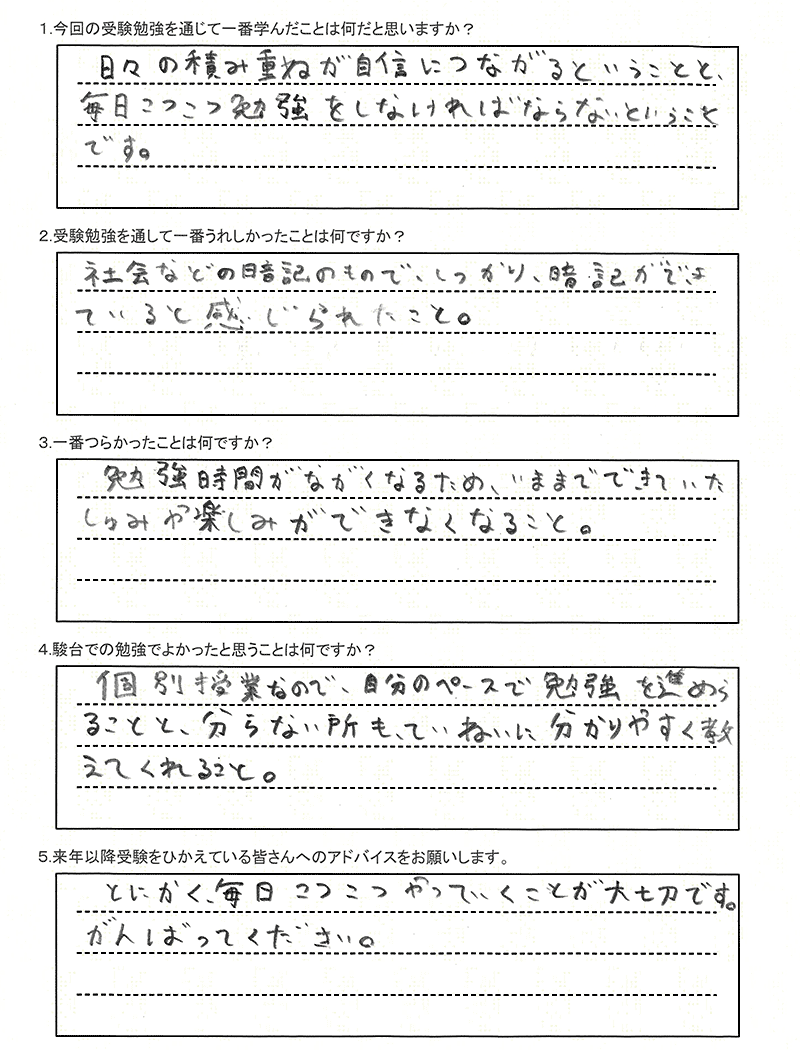 1.今回の受験勉強を通じて一番学んだことは何だと思いますか？
日々の積み重ねが自信につながるということと、
毎日こつこつ勉強をしなければならないということ
です。
2.受験勉強を通して一番うれしかったことは何ですか？
社会などの暗記のもので、しっかり、暗記ができ
ていると感じられたこと。
3.一番つらかったことは何ですか？
勉強時間がながくなるため、いままでできていた
しゅみや楽しみができなくなること。
4.駿台での勉強でよかったと思うことは何ですか？
個別授業なので、自分のペースで勉強を進めら
ることと、分らない所も、ていねいに分かりやすく教
えてくれること。
5.来年以降受験をひかえている皆さんへのアドバイスをお願いします。
とにかく、毎日こつこつやっていくことが大切です。
がんばってください。